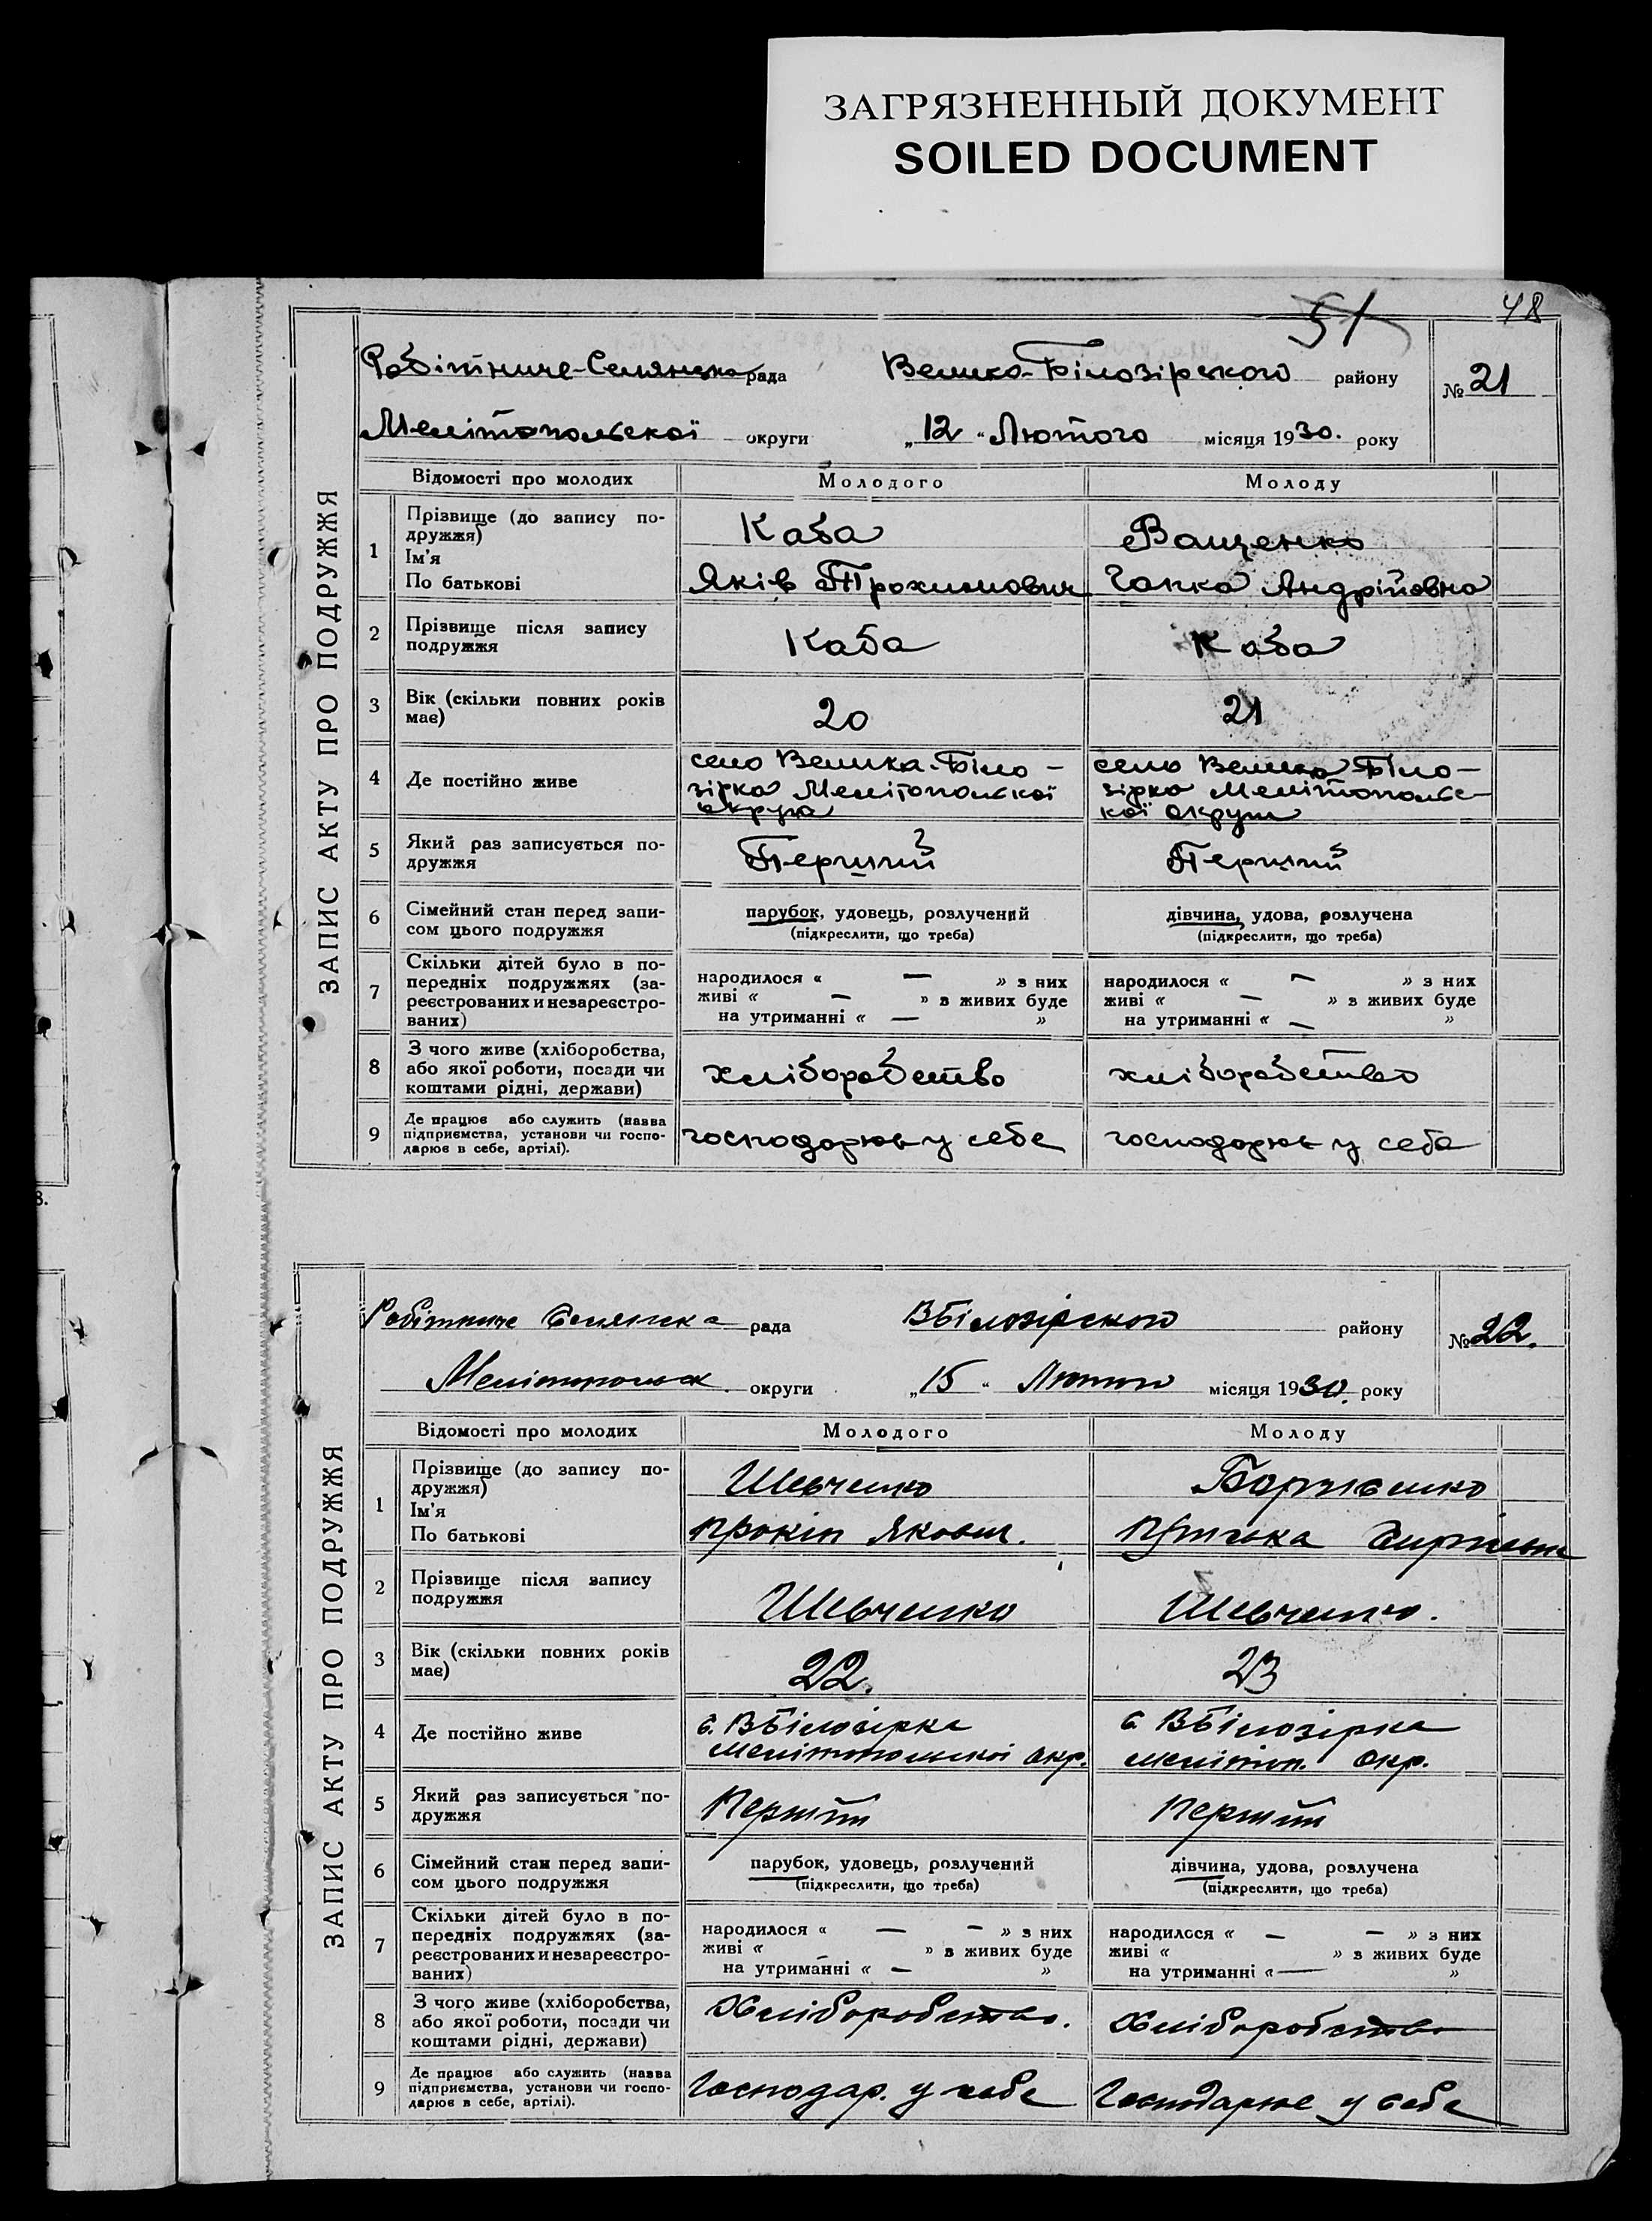 ЗАГРЯЗНЕННЫЙ ДОКУМЕНТ
SOILED DOCUMENT
51
48
ЗАПИС АКТУ ПРО ПОДРУЖЖЯ
Робітниче-Селянська рада Велико-Білозірського району № 21
Мелітопольскої округи „12“ Лютого місяця 1930. року
Відомості про молодих Молодого Молоду
1 Прізвище (до запису по-
дружжя) Каба Ващенко
Ім'я
По батькові Яків Трохимович Гапка Андрійовна
2 Прізвище після запису
подружжя Каба Каба
3 Вік (скільки повних років
має) 20 21
4 Де постійно живе
село Велика-Біло-
зірка Мелітопольскої
округа
село Велика Біло-
зірка Мелітополь-
скої округи
5 Який раз записується по-
дружжя Перший Перший
6 Сімейний стан перед запи-
сом цього подружжя
парубок, удовець, розлучений
(підкреслити, що треба)
дівчина, удова, розлучена
(підкреслити, що треба)
7 Скільки дітей було в по-
передніх подружжях (за-
реєстрованих и незареєстро-
ваних)
народилося « — » з них
живі « — » з живих буде
на утриманні « — »
народилося « — » з них
живі « — » з живих буде
на утриманні « — »
8 З чого живе (хліборобства,
або якої роботи, посади чи
коштами рідні, держави)
хліборобство хліборобство
9 Де працює або служить (назва
підприємства, установи чи госпо-
дарює в себе, артілі).
господарює у себе господарює у себе
ЗАПИС АКТУ ПРО ПОДРУЖЖЯ
Робітниче Селянська рада ВБілозірского району № 22.
Мелітопольск округи „15“ Лютого місяця 1930. року
Відомості про молодих Молодого Молоду
1 Прізвище (до запису по-
дружжя) Шевченко
Ім'я
По батькові Прокіп Якович.
2 Прізвище після запису
подружжя Шевченко Шевченко.
3 Вік (скільки повних років
має) 22. 23
4 Де постійно живе
с. ВБілозірка
Мелітопольскої окр.
с ВБілозірка
меліто́п. окр.
5 Який раз записується по-
дружжя Перший Перший
6 Сімейний стан перед запи-
сом цього подружжя
парубок, удовець, розлучений
(підкреслити, що треба)
дівчина, удова, розлучена
(підкреслити, що треба)
7 Скільки дітей було в по-
передніх подружжях (за-
реєстрованих и незареєстро-
ваних)
народилося « — — » з них
живі « — » з живих буде
на утриманні « — »
народилося « — — » з них
живі « » з живих буде
на утриманні « — »
8 З чого живе (хліборобства,
або якої роботи, посади чи
коштами рідні, держави)
Хліборобство. Хліборобство
9 Де працює або служить (назва
підприємства, установи чи госпо-
дарює в себе, артілі).
Господар. у себе Господарює у себе